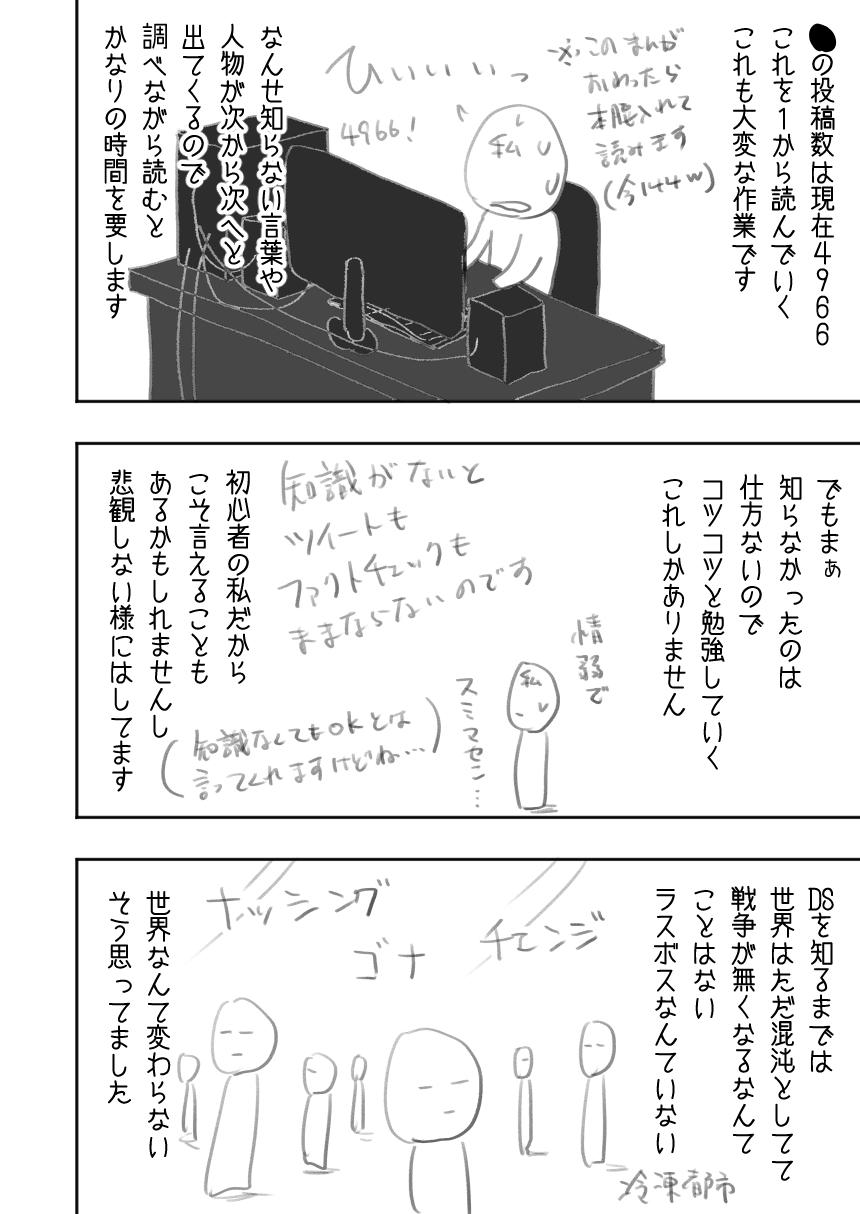 ●の投稿数は現在4966
これを1から読んでいく
これも大変な作業です
※このまんが
おわったら
本腰入れて
読みます
(今144w)
ひぃぃぃぃっ
4966!
私
なんせ知らない言葉や
人物が次から次へと
出てくるので
調べながら読むと
かなりの時間を要します
でもまぁ
知らなかったのは
仕方ないので
コツコツと勉強していく
これしかありません
知識がないと
ツイートも
ファクトチェックも
ままならないのです
情弱で
スミマセン…
私
初心者の私だから
こそ言えることも
あるかもしれませんし
悲観しない様にはしてます
(知識なくてもOKとは
言ってくれますけどね…)
DSを知るまでは
世界はただ混沌としてて
戦争が無くなるなんて
ことはない
ラスボスなんていない
ナッシング
ゴナ
チェンジ
冷凍都市
世界なんて変わらない
そう思ってました